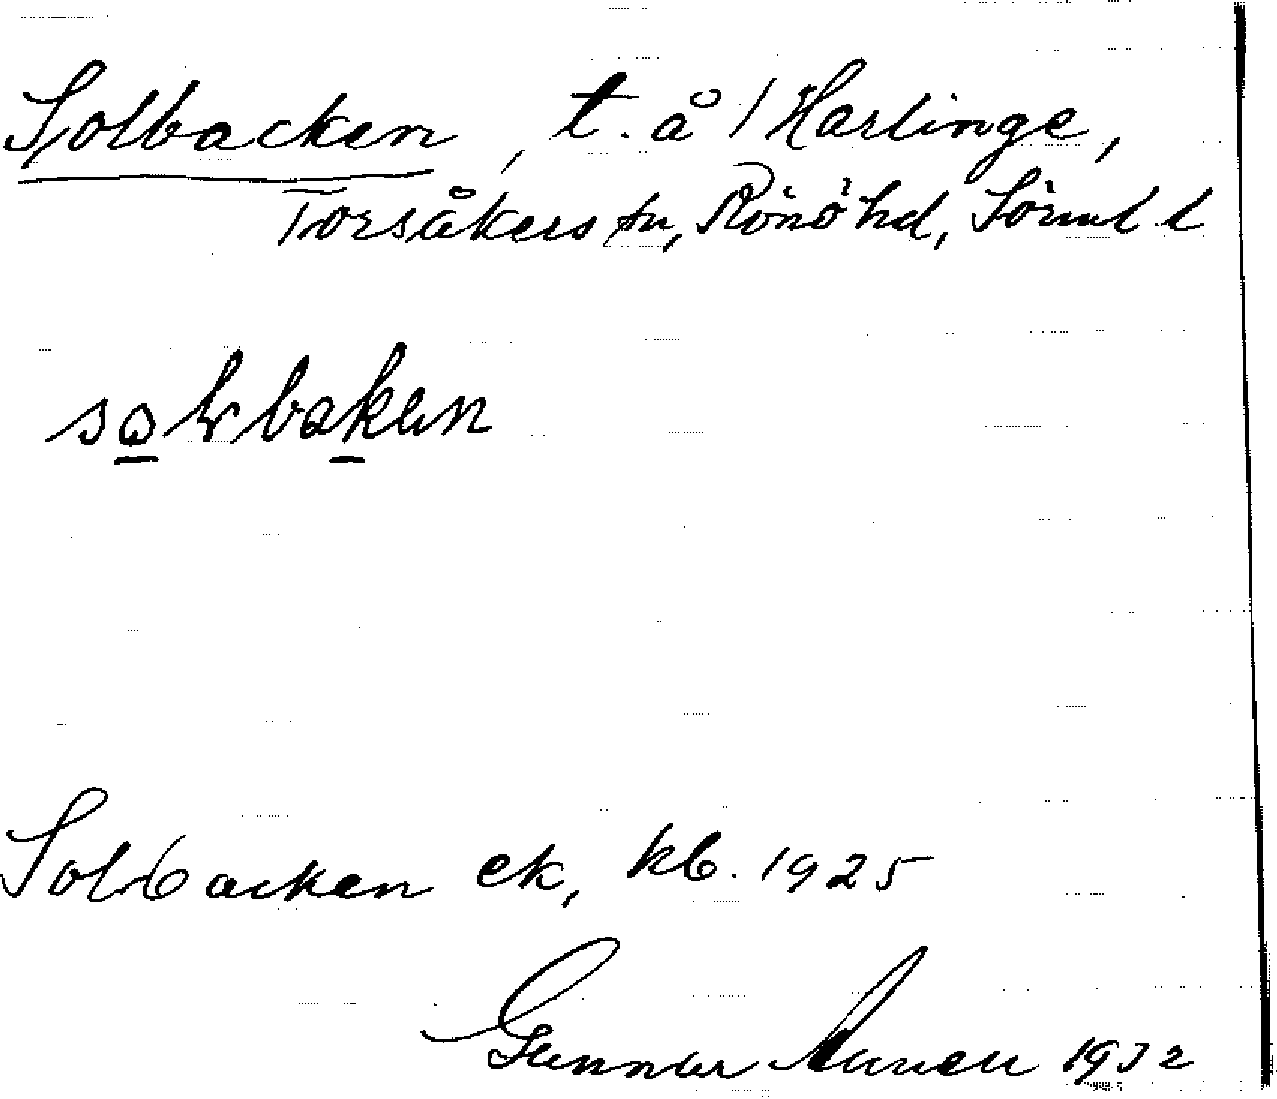 Solbacken, t. å / Harlinge,
Torsåkers sn, Rönö hd, Sörml l
Solbacken ek, kb. 1925
Gunnar 1932